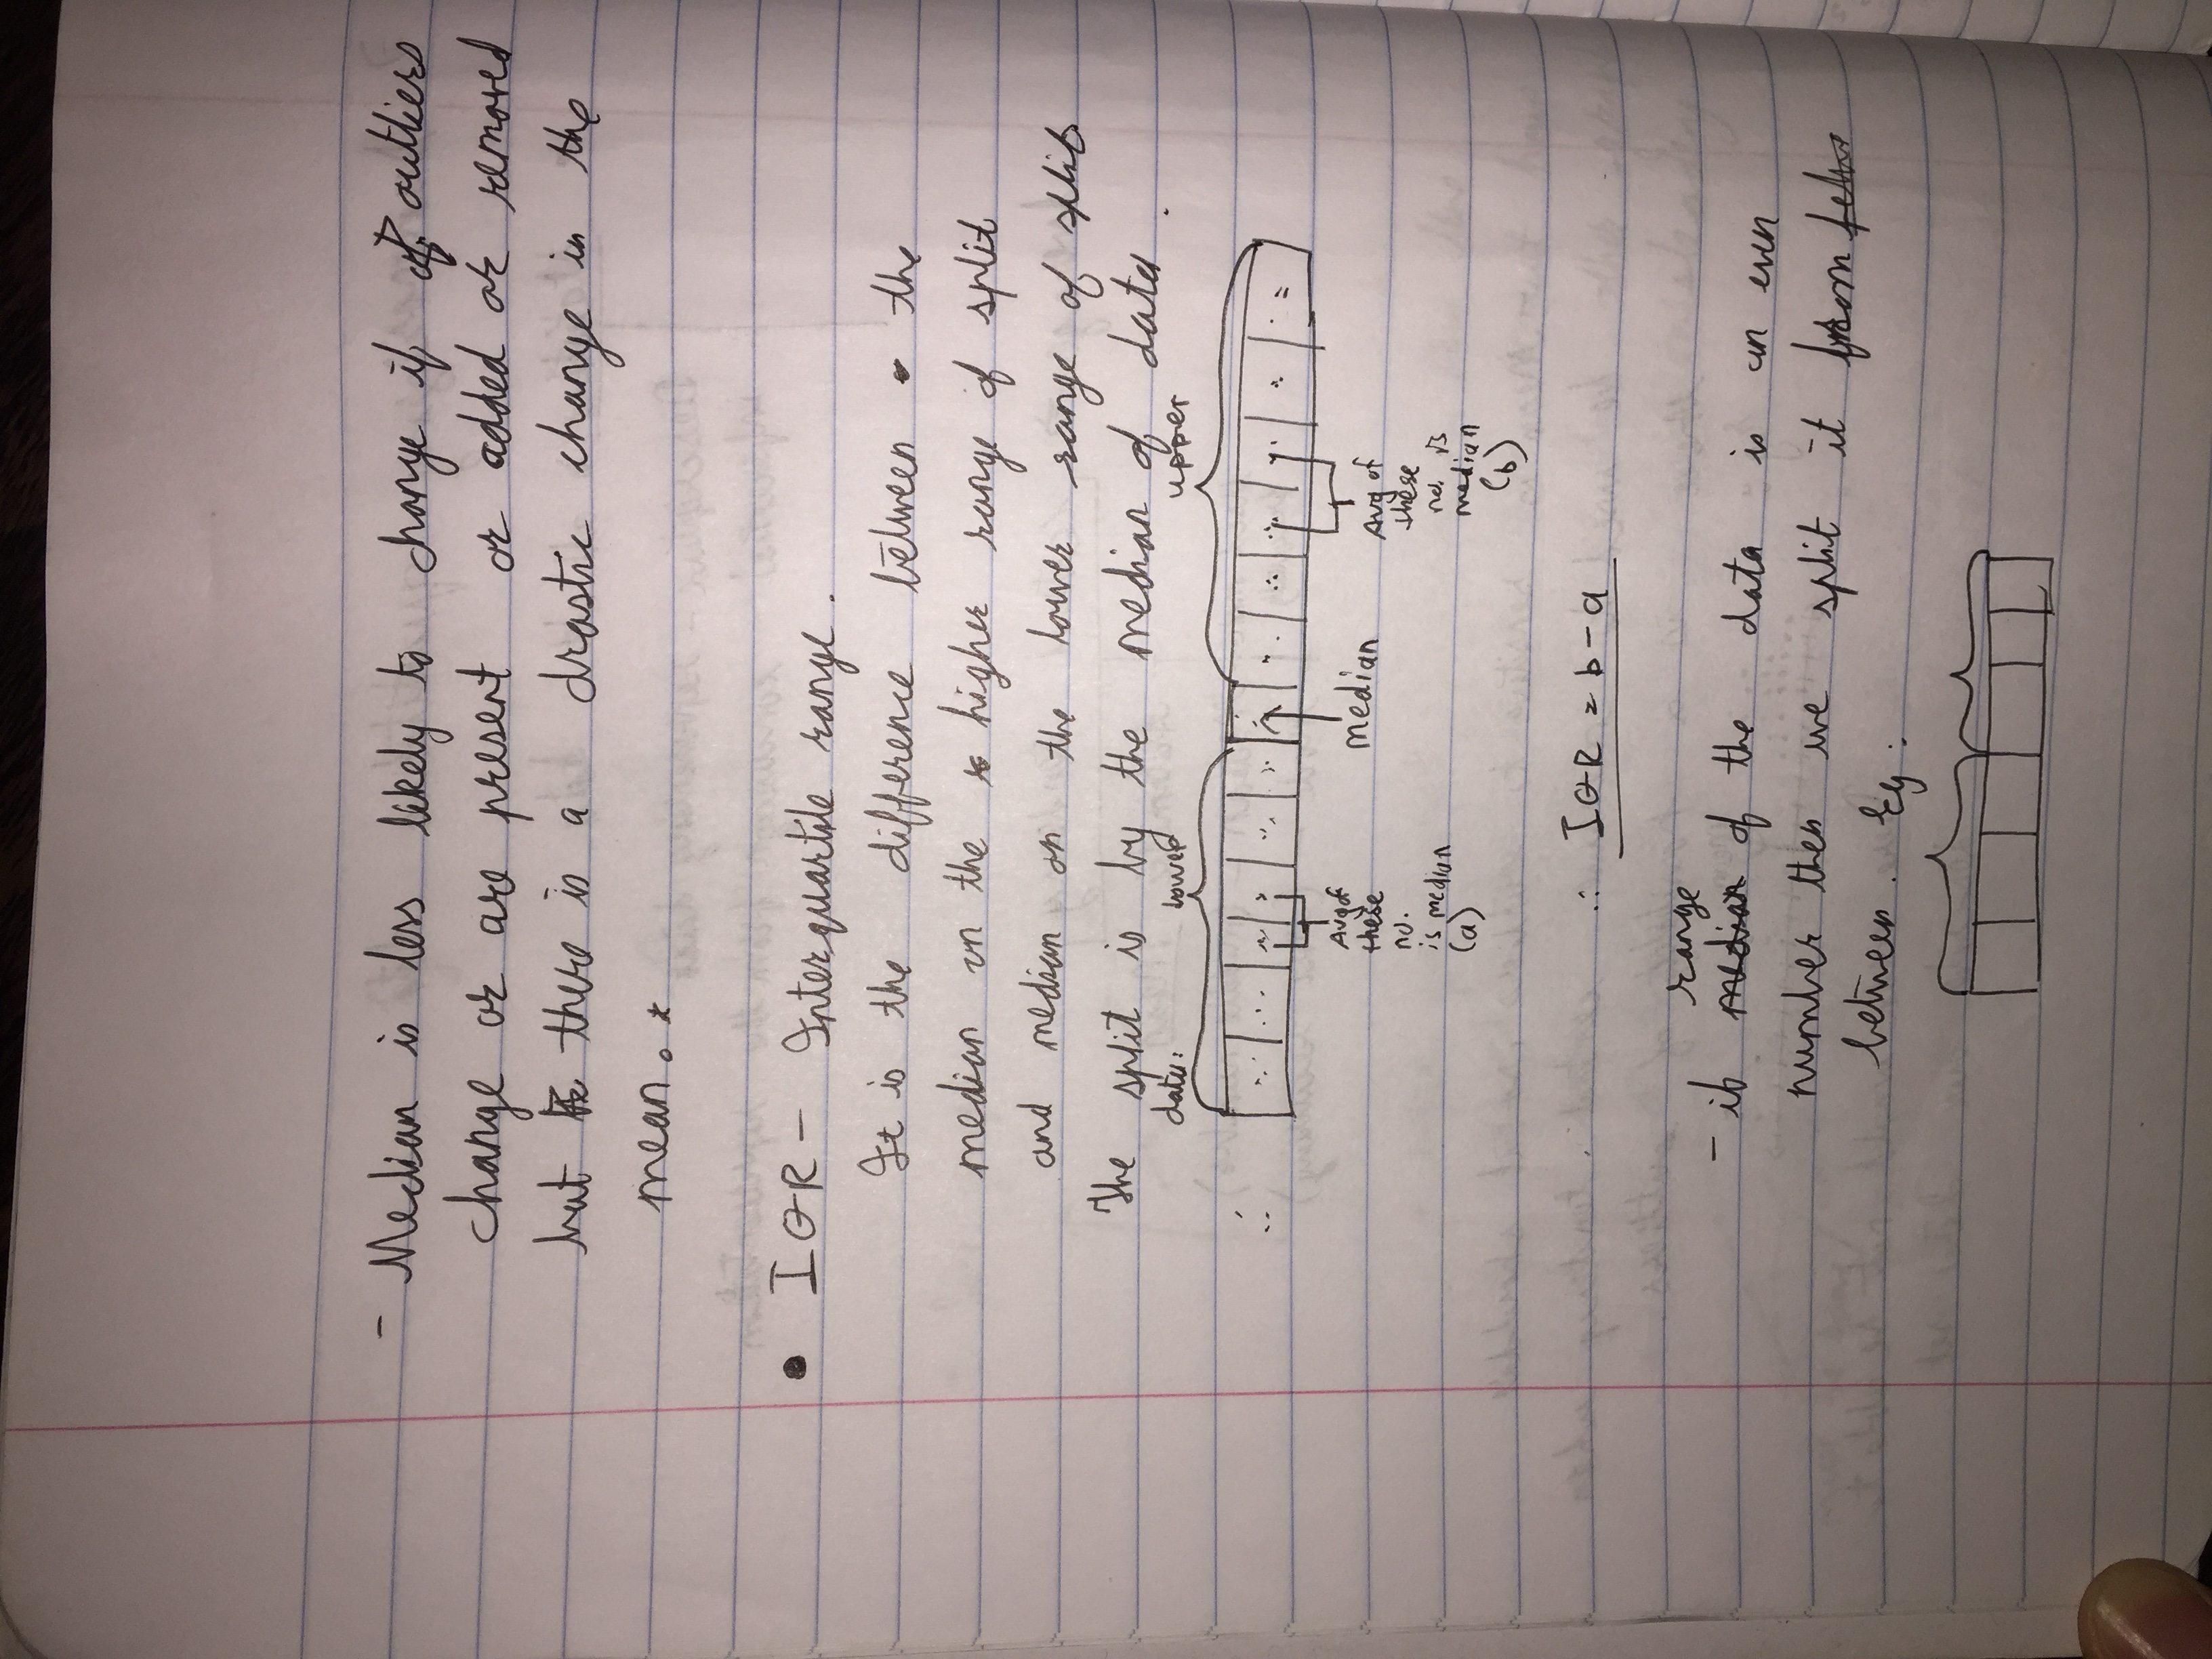 - Median is less likely to change if of outliers
change or are present or added or removed
but there is a drastic change in the
mean. *
• IQR - Interquartile range.
It is the difference between the
median on the higher range of split
and median on the lower range of split
The split is by the median of data.
data: lower upper
∴
Avg of
these
no.
is median
(a)
median
Avg of
these
no. is
median
(b)
∴ IQR = b - a
range
- if median of the data is an even
number then we split it from
between. Eg: